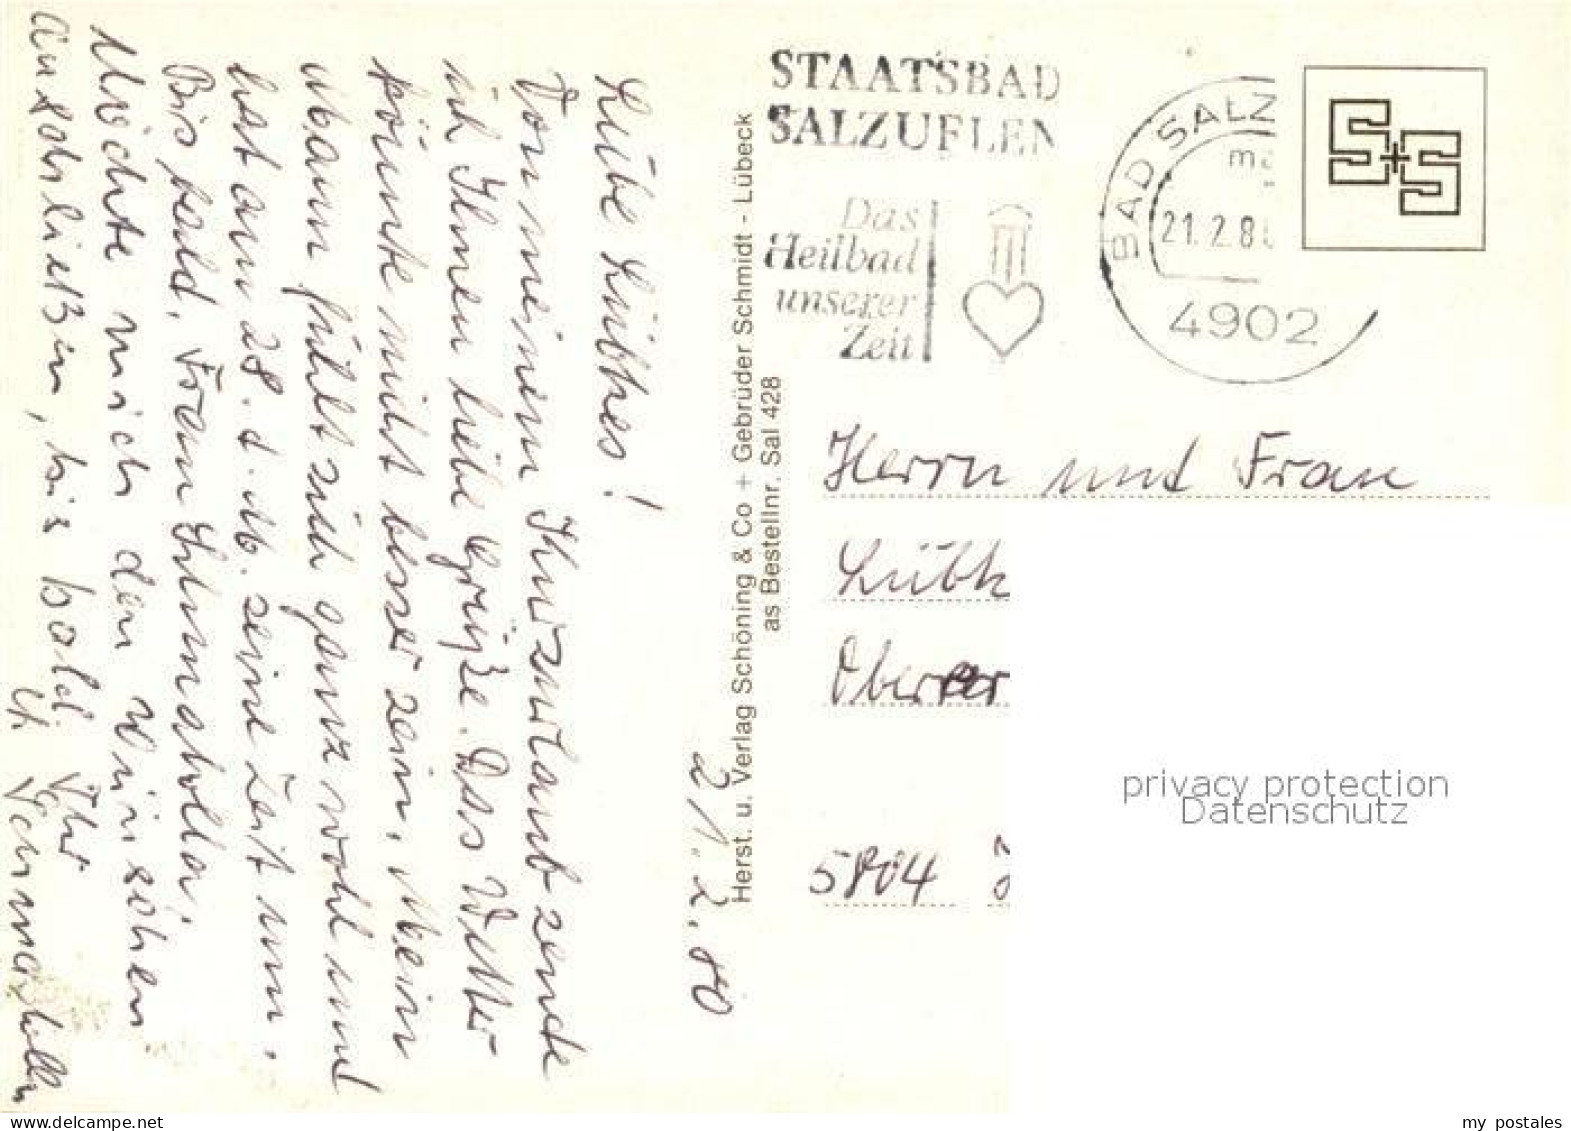 21.2.80
Liebe Lübkes!
Von meinem Kurzurlaub sende
ich Ihnen liebe Grüße. Das Wetter
könnte nicht besser sein. Mein
Mann fühlt sich ganz wohl und
hat am 28. d. M. seine Zeit um.
Bis bald, Frau Schumacholla;
Möchte mich den Wünschen
anschließen, bis bald. Ihr
Herst. u. Verlag Schöning & Co + Gebrüder Schmidt - Lübeck
as Bestellnr. Sal 428
STAATSBAD
SALZUFLEN
Das
Heilbad
unserer
Zeit
BAD SALZ
21.2.8
4902
S+S
Herrn und Frau
Lübk
Oberer
5804
privacy protection
Datenschutz
my postales